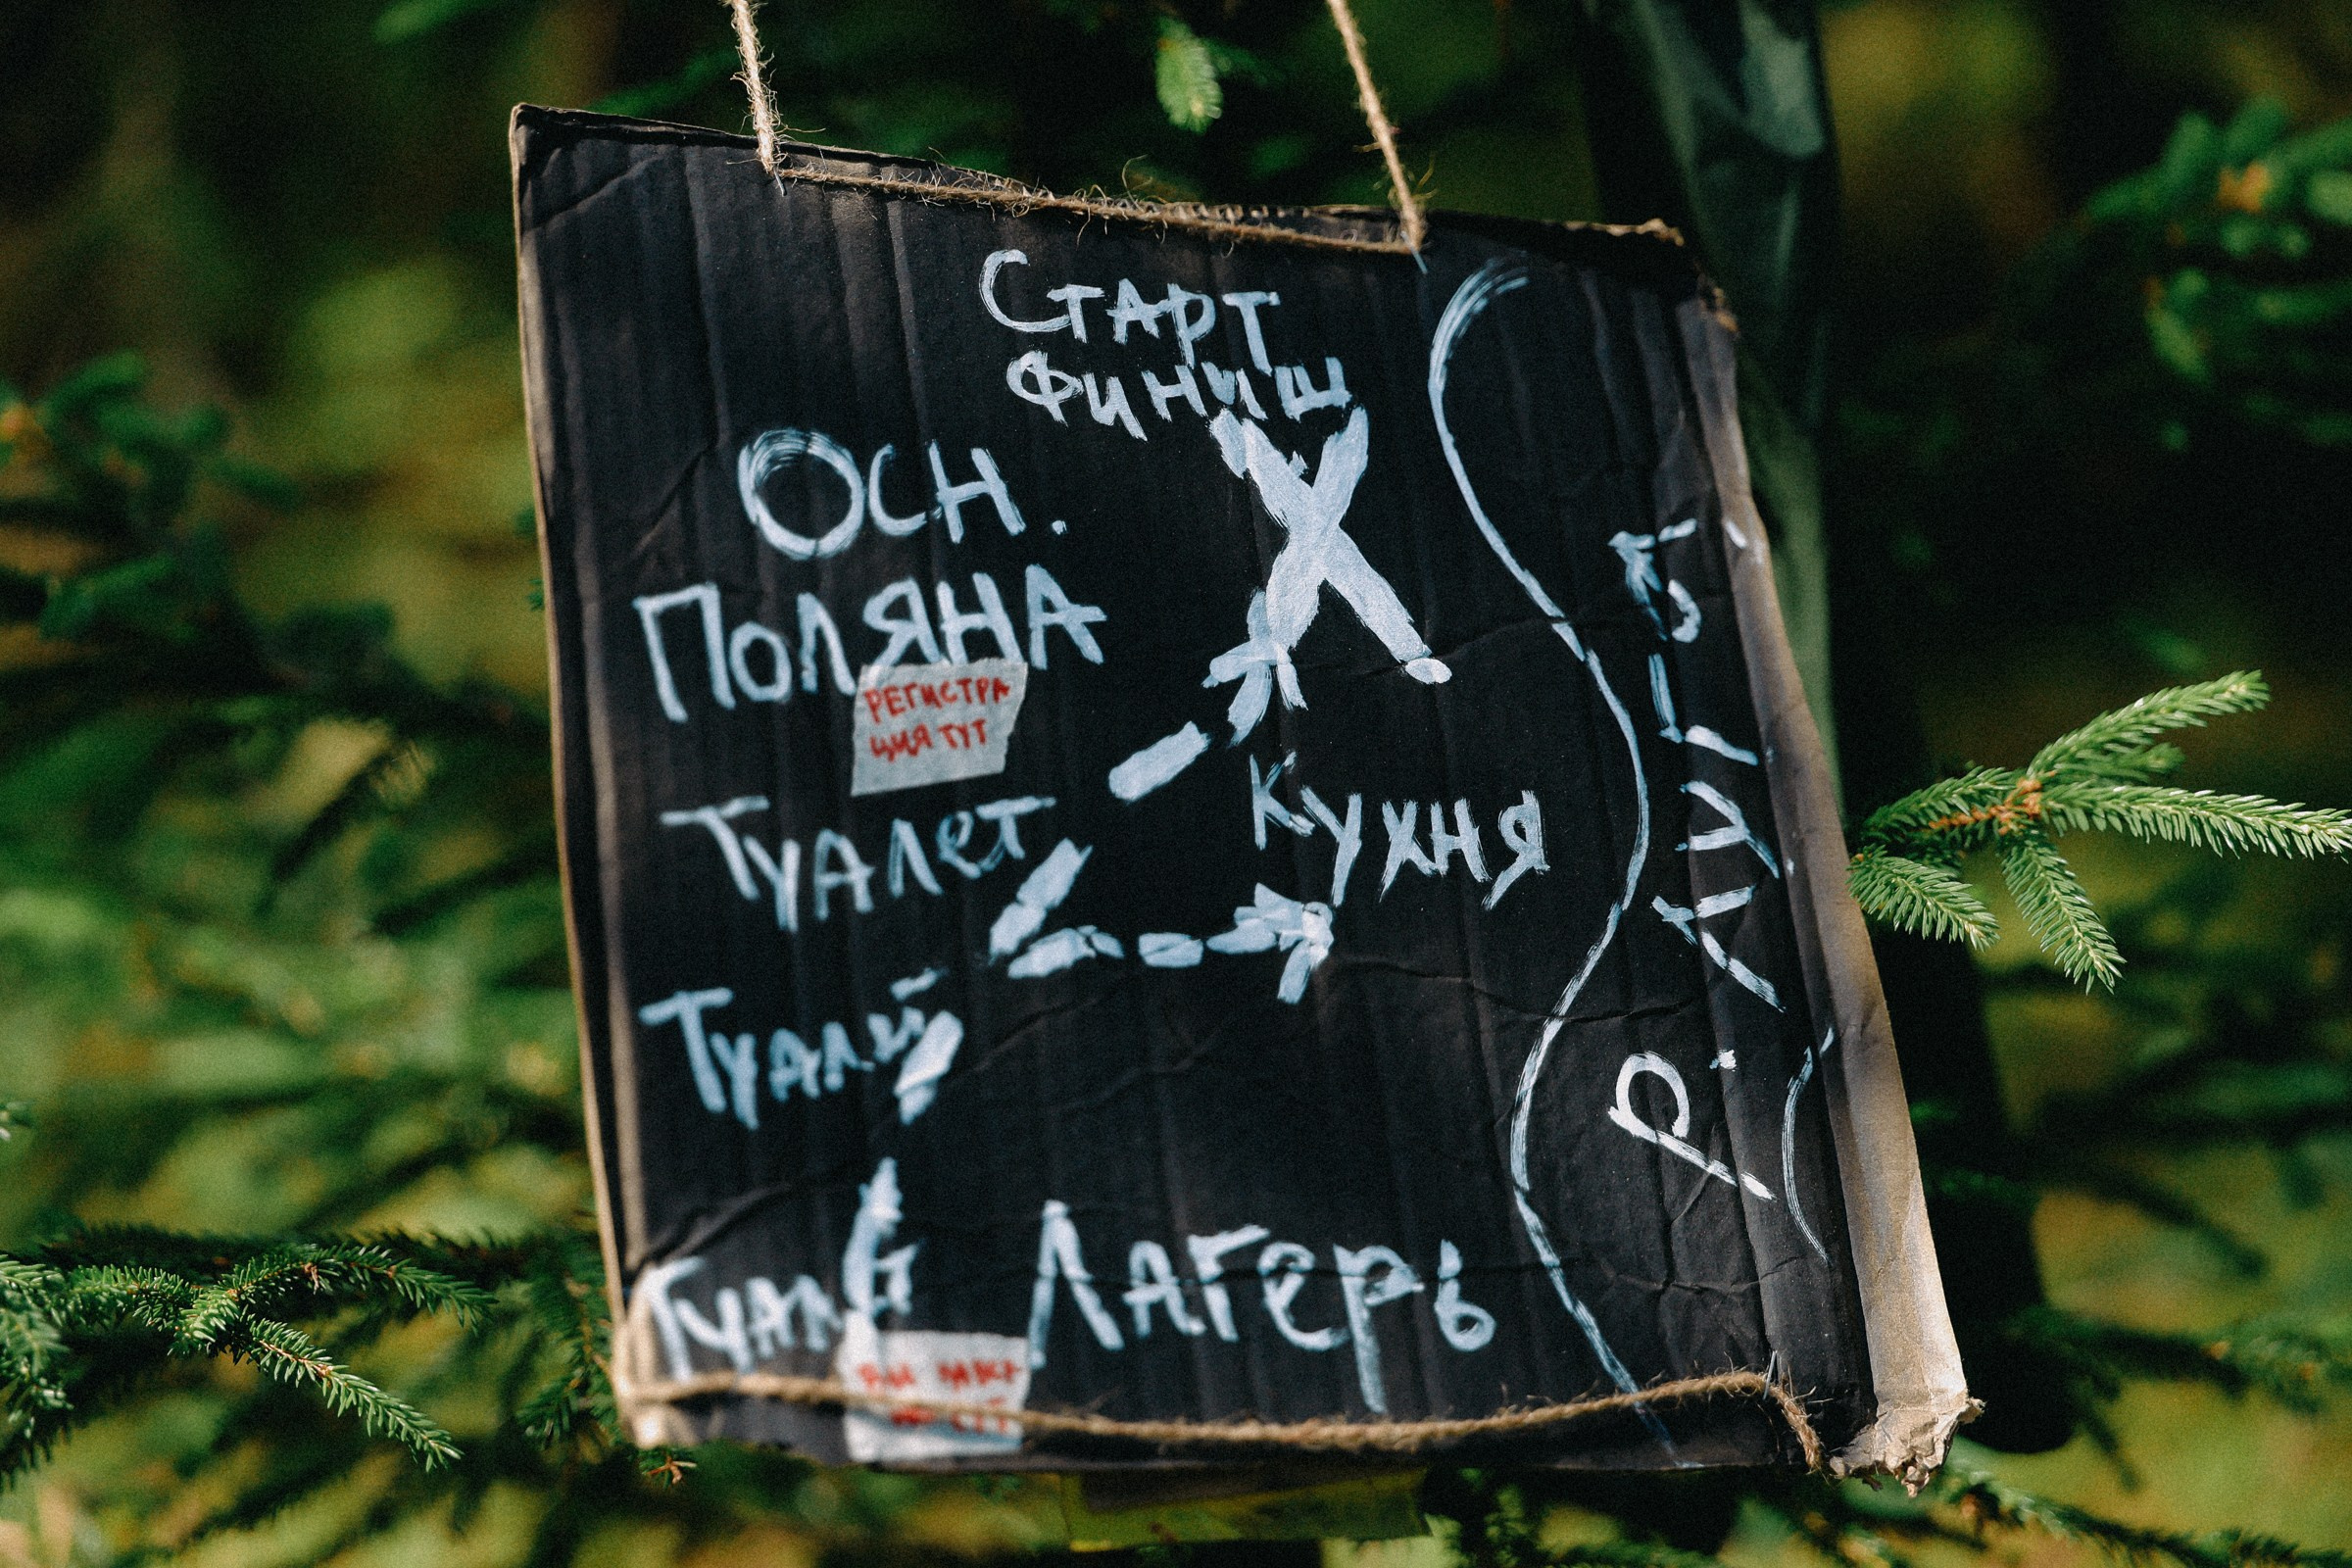 Старт
Финиш
Осн.
Поляна
РЕГИСТРА
ЦИЯ ТУТ
Туалет
Кухня
Туал
Туал
Лагерь